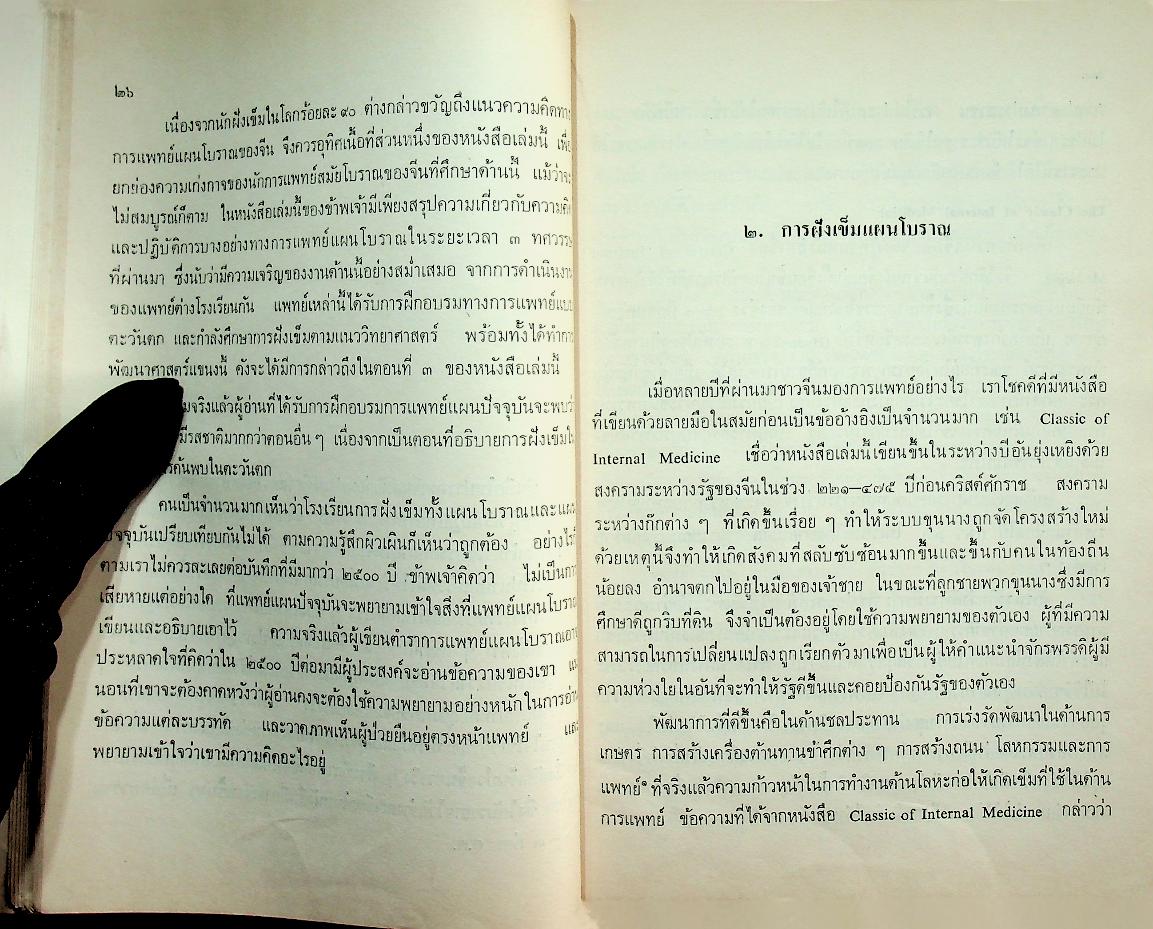 ๒๖
เนื่องจากนักฝังเข็มในโลกร้อยละ ๙๐ ต่างกล่าวขวัญถึงแนวความคิดทาง
การแพทย์แผนโบราณของจีน จึงควรอุทิศเนื้อที่ส่วนหนึ่งของหนังสือเล่มนี้ เพื่อ
ยกย่องความเก่งกาจของนักการแพทย์สมัยโบราณของจีนที่ศึกษาด้านนี้ แม้ว่าจะ
ไม่สมบูรณ์ก็ตาม ในหนังสือเล่มนี้ของข้าพเจ้ามีเพียงสรุปความเกี่ยวกับความคิด
และปฏิบัติการบางอย่างทางการแพทย์แผนโบราณในระยะเวลา ๓ ทศวรรษ
ที่ผ่านมา ซึ่งนับว่ามีความเจริญของงานด้านนี้อย่างสม่ำเสมอ จากการดำเนินงาน
ของแพทย์ต่างโรงเรียนกัน แพทย์เหล่านี้ได้รับการฝึกอบรมทางการแพทย์แบบ
ตะวันตก และกำลังศึกษาการฝังเข็มตามแนววิทยาศาสตร์ พร้อมทั้งได้ทำการ
พัฒนาศาสตร์แขนงนี้ ดังจะได้มีการกล่าวถึงในตอนที่ ๓ ของหนังสือเล่มนี้
จริงแล้วผู้อ่านที่ได้รับการฝึกอบรมการแพทย์แผนปัจจุบันจะพบว่า
มีรสชาติมากกว่าตอนอื่น ๆ เนื่องจากเป็นตอนที่อธิบายการฝังเข็มใน
ค้นพบในตะวันตก
คนเป็นจำนวนมากเห็นว่าโรงเรียนการฝังเข็มทั้งแผนโบราณและแผน
ปัจจุบันเปรียบเทียบกันไม่ได้ ตามความรู้สึกผิวเผินก็เห็นว่าถูกต้อง อย่างไร
ตามเราไม่ควรละเลยต่อบันทึกที่มีมากว่า ๒๕๐๐ ปี ข้าพเจ้าคิดว่า ไม่เป็นการ
เสียหายแต่อย่างใด ที่แพทย์แผนปัจจุบันจะพยายามเข้าใจสิ่งที่แพทย์แผนโบราณ
เขียนและอธิบายเอาไว้ ความจริงแล้วผู้เขียนตำราการแพทย์แผนโบราณอาจ
ประหลาดใจที่คิดว่าใน ๒๕๐๐ ปีต่อมามีผู้ประสงค์จะอ่านข้อความของเขา แน่
นอนที่เขาจะต้องคาดหวังว่าผู้อ่านคงจะต้องใช้ความพยายามอย่างหนักในการอ่าน
ข้อความแต่ละบรรทัด และวาดภาพเห็นผู้ป่วยยืนอยู่ตรงหน้าแพทย์ และ
พยายามเข้าใจว่าเขามีความคิดอะไรอยู่
๒. การฝังเข็มแผนโบราณ
เมื่อหลายปีที่ผ่านมาชาวจีนมองการแพทย์อย่างไร เราโชคดีที่มีหนังสือ
ที่เขียนด้วยลายมือในสมัยก่อนเป็นข้ออ้างอิงเป็นจำนวนมาก เช่น Classic of
Internal Medicine เชื่อว่าหนังสือเล่มนี้เขียนขึ้นในระหว่างปีอันยุ่งเหยิงด้วย
สงครามระหว่างรัฐของจีนในช่วง ๒๒๑—๔๗๕ ปีก่อนคริสต์ศักราช สงคราม
ระหว่างก๊กต่าง ๆ ที่เกิดขึ้นเรื่อย ๆ ทำให้ระบบขุนนางถูกจัดโครงสร้างใหม่
ด้วยเหตุนี้จึงทำให้เกิดสังคมที่สลับซับซ้อนมากขึ้นและขึ้นกับคนในท้องถิ่น
น้อยลง อำนาจตกไปอยู่ในมือของเจ้าชาย ในขณะที่ลูกชายพวกขุนนางซึ่งมีการ
ศึกษาดีถูกริบที่ดิน จึงจำเป็นต้องอยู่โดยใช้ความพยายามของตัวเอง ผู้ที่มีความ
สามารถในการเปลี่ยนแปลงถูกเรียกตัวมาเพื่อเป็นผู้ให้คำแนะนำจักรพรรดิผู้มี
ความห่วงใยในอันที่จะทำให้รัฐดีขึ้นและคอยป้องกันรัฐของตัวเอง
พัฒนาการที่ดีขึ้นคือในด้านชลประทาน การเร่งรัดพัฒนาในด้านการ
เกษตร การสร้างเครื่องต้านทานข้าศึกต่าง ๆ การสร้างถนน โลหกรรมและการ
แพทย์ ที่จริงแล้วความก้าวหน้าในการทำงานด้านโลหะก่อให้เกิดเข็มที่ใช้ในด้าน
การแพทย์ ข้อความที่ได้จากหนังสือ Classic of Internal Medicine กล่าวว่า